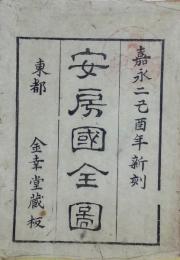 嘉永二己酉年新刻
安房國全圖
東都 金幸堂蔵板